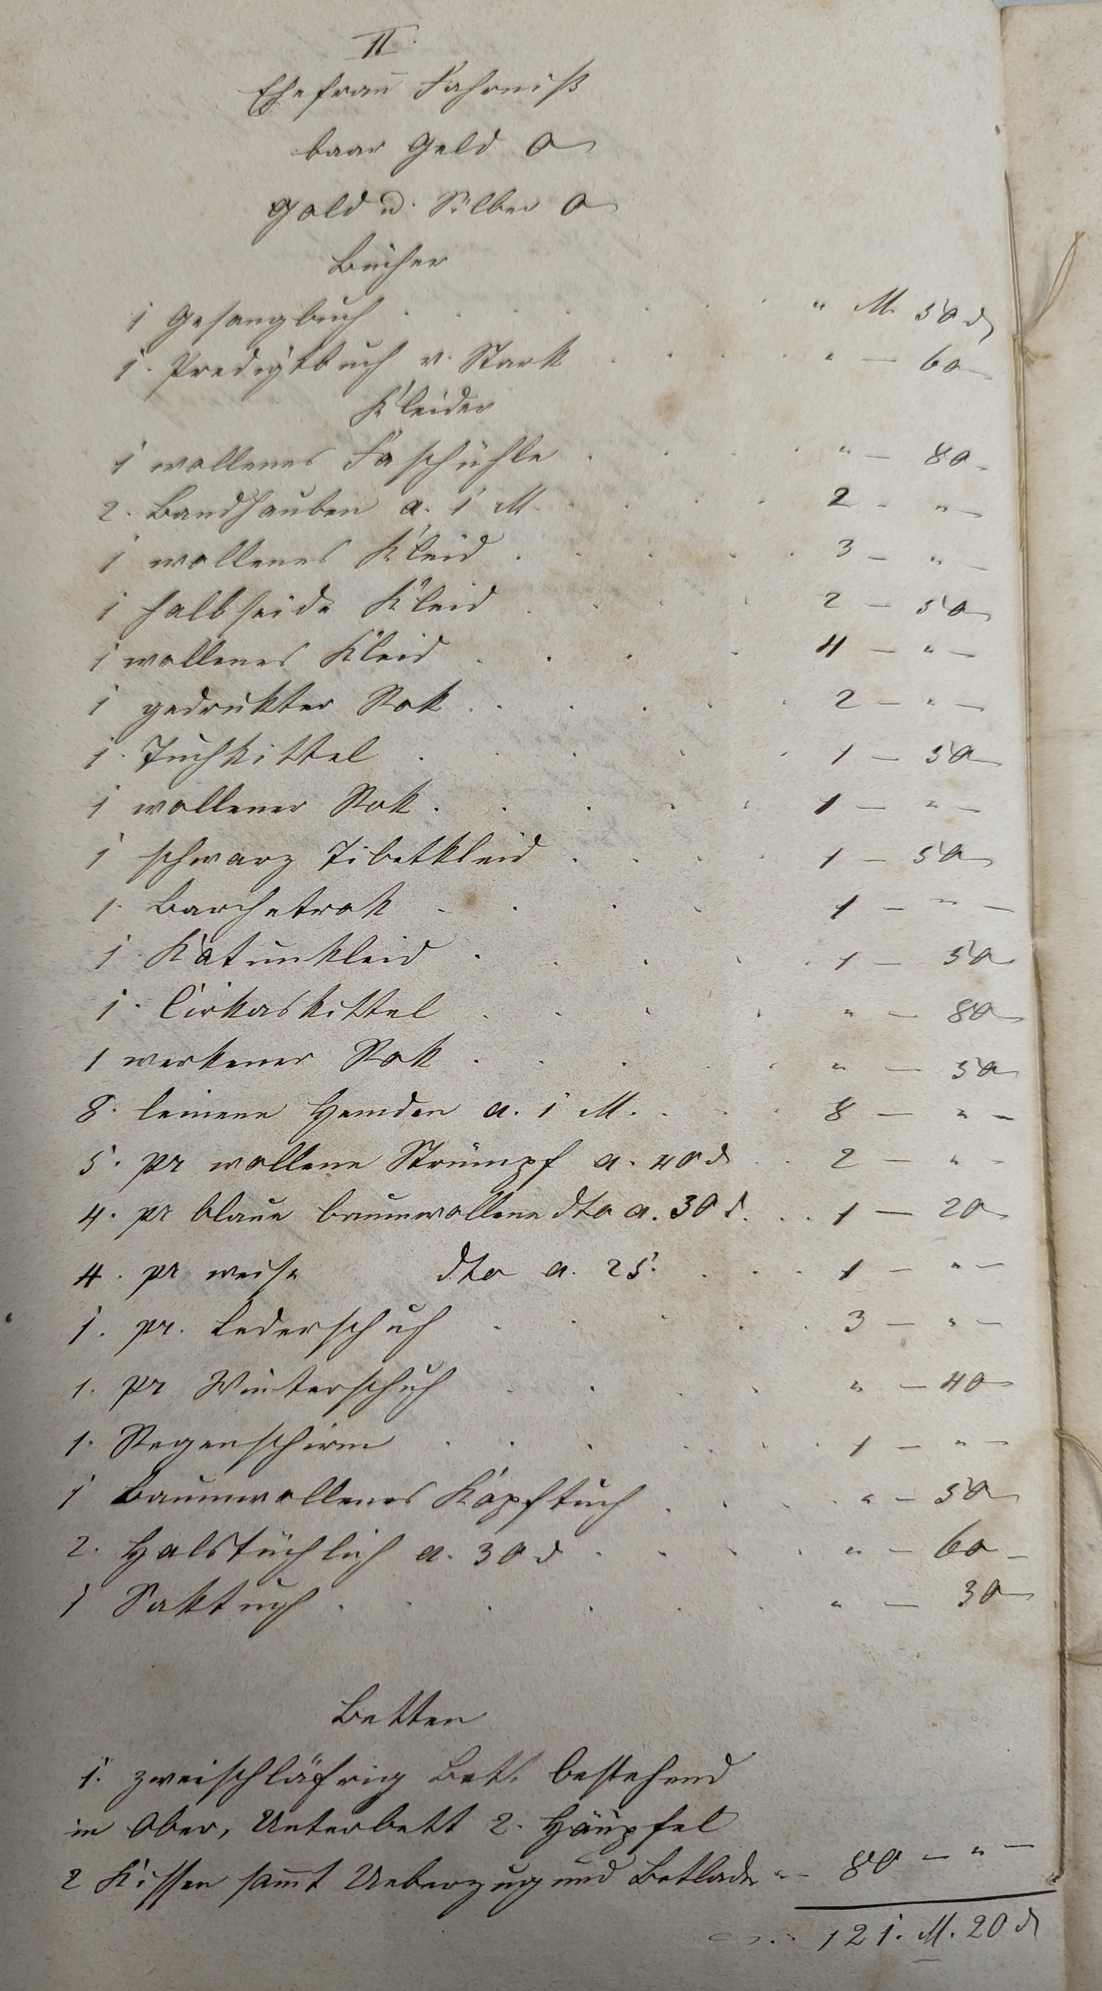 II.
Ehefrau Fahrniß
baar Geld 0
Gold u. Silber 0
Bücher
1 Gesangbuch . . . . . " M. 50 d
1. Predigtbuch v. Stark . . . . " — 60
Kleider
1 wollenes . . . . " — 80
2. Bandhauben a. 1 M. . . . 2 - "
1 wollenes Kleid . . . . 3 — "
1 halbseide Kleid . . . . 2 — 50
1 wollenes Kleid . . . . 4 — " —
1 gedrukter Rok . . . . 2 — " —
1. Tuchkittel . . . . 1 — 50
1 wollener Rok . . . . 1 — " —
1 schwarz Tibetkleid . . . . 1 — 50
1. Barchetrok . . . . 1 — " —
1 Katunkleid . . . . 1 — 50
1. Cirkaskittel . . . . " — 80
1 werkener Rok . . . . " — 50
8. leinene Hemden a. 1 M. . . . 8 — " —
5. pr wollene Strümpf a. 40 d . . 2 — " —
4. pr blaue baumwollene dto a. 30 d. . . 1 — 20
4. pr weise dto a. 25. . . . 1 — " —
1. pr. Lederschuh . . . . 3 — " —
1. pr Winterschuh . . . . " — 40
1. Regenschirm . . . . 1 — " —
1 Baumwollenes Kopftuch . . . . " — 50
2. Halstüchlich a. 30 d . . . . " — 60
1 Saktuch . . . . " — 30
Betten
1. zweischläfrig Bett bestehend
in Ober, Unterbett 2. Häupfel
2 Kissen samt Ueberzug und Betlade — 80 — " —
121. M. 20 d